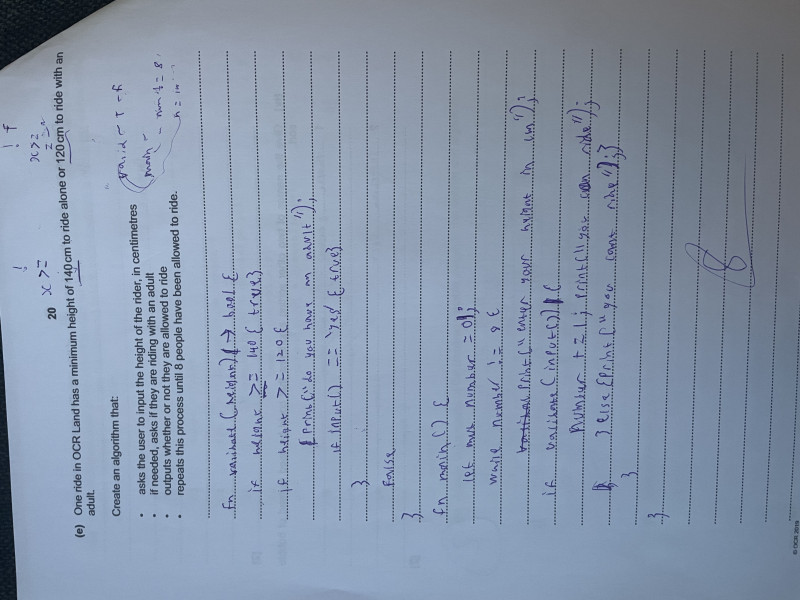 ! F
x>=
!
x >=
20
(e) One ride in OCR Land has a minimum height of 140cm to ride alone or 120cm to ride with an
adult.
Create an algorithm that:
• asks the user to input the height of the rider, in centimetres
• if needed, asks if they are riding with an adult
• outputs whether or not they are allowed to ride
• repeats this process until 8 people have been allowed to ride.
valid – T – F
main –
num != 8
fn valihate (height) -> bool {
if height >= 140 { true }
if height >= 120 {
print("do you have an adult");
if input() == "yes" { true }
}
false
}
fn main() {
let mut number = 0;
while number != 8 {
print("enter your height in cm");
if valihate (input()) {
number += 1; print("you can ride");
} else { print("you cant ride"); }
}
}
8
© OCR 2019